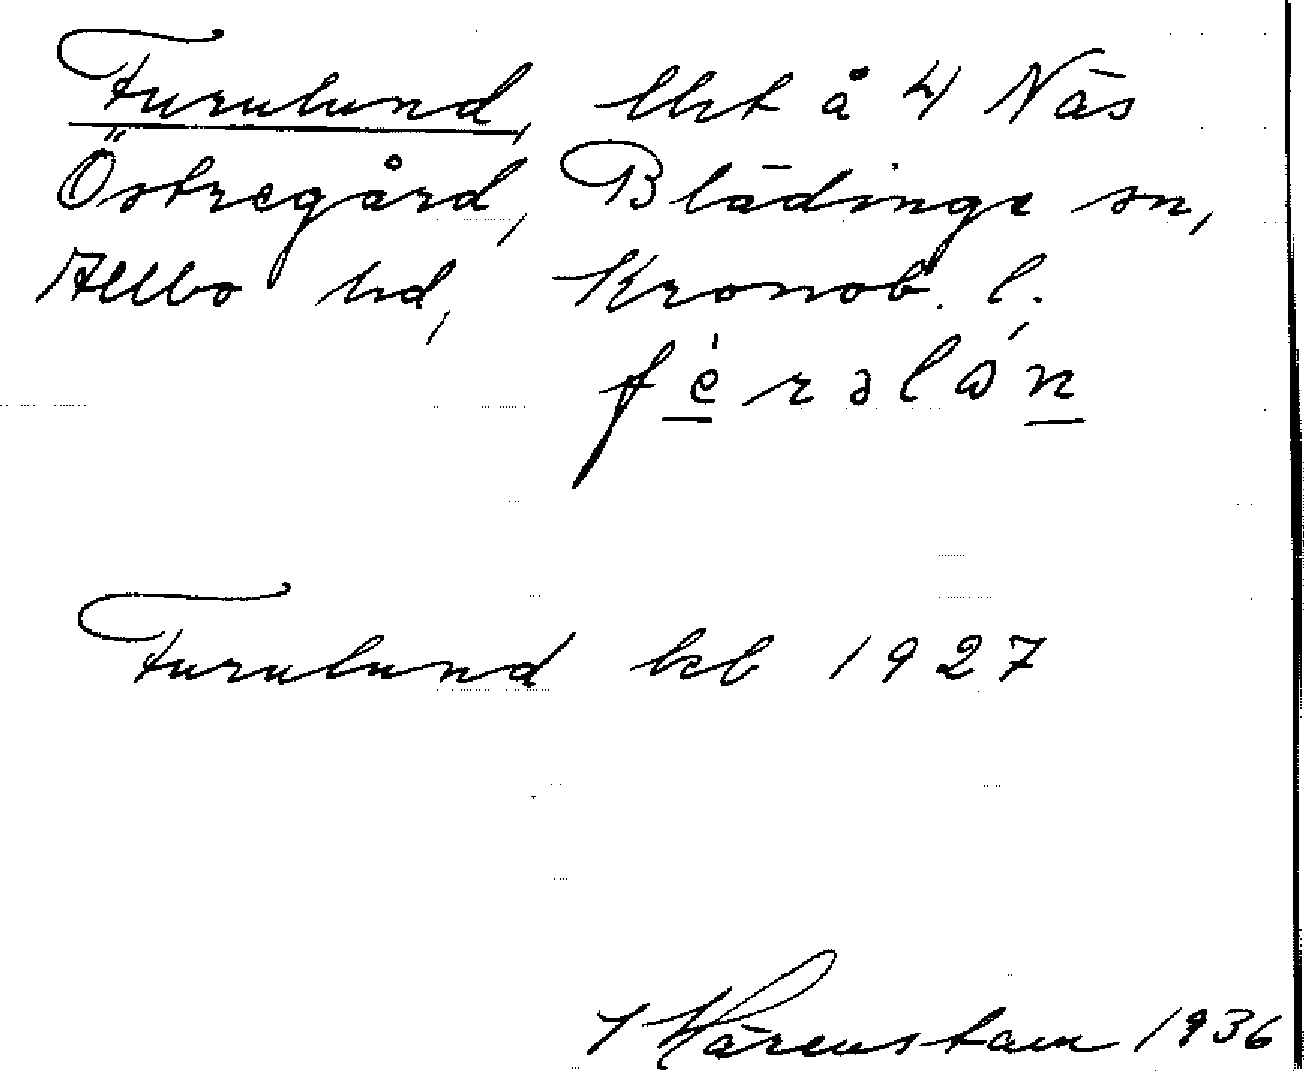 Furulund, lht å 4 Näs
Östregård, Blädinge sn,
Allbo hd, Kronob. l.
Furulund kb 1927
Kärenstam 1936